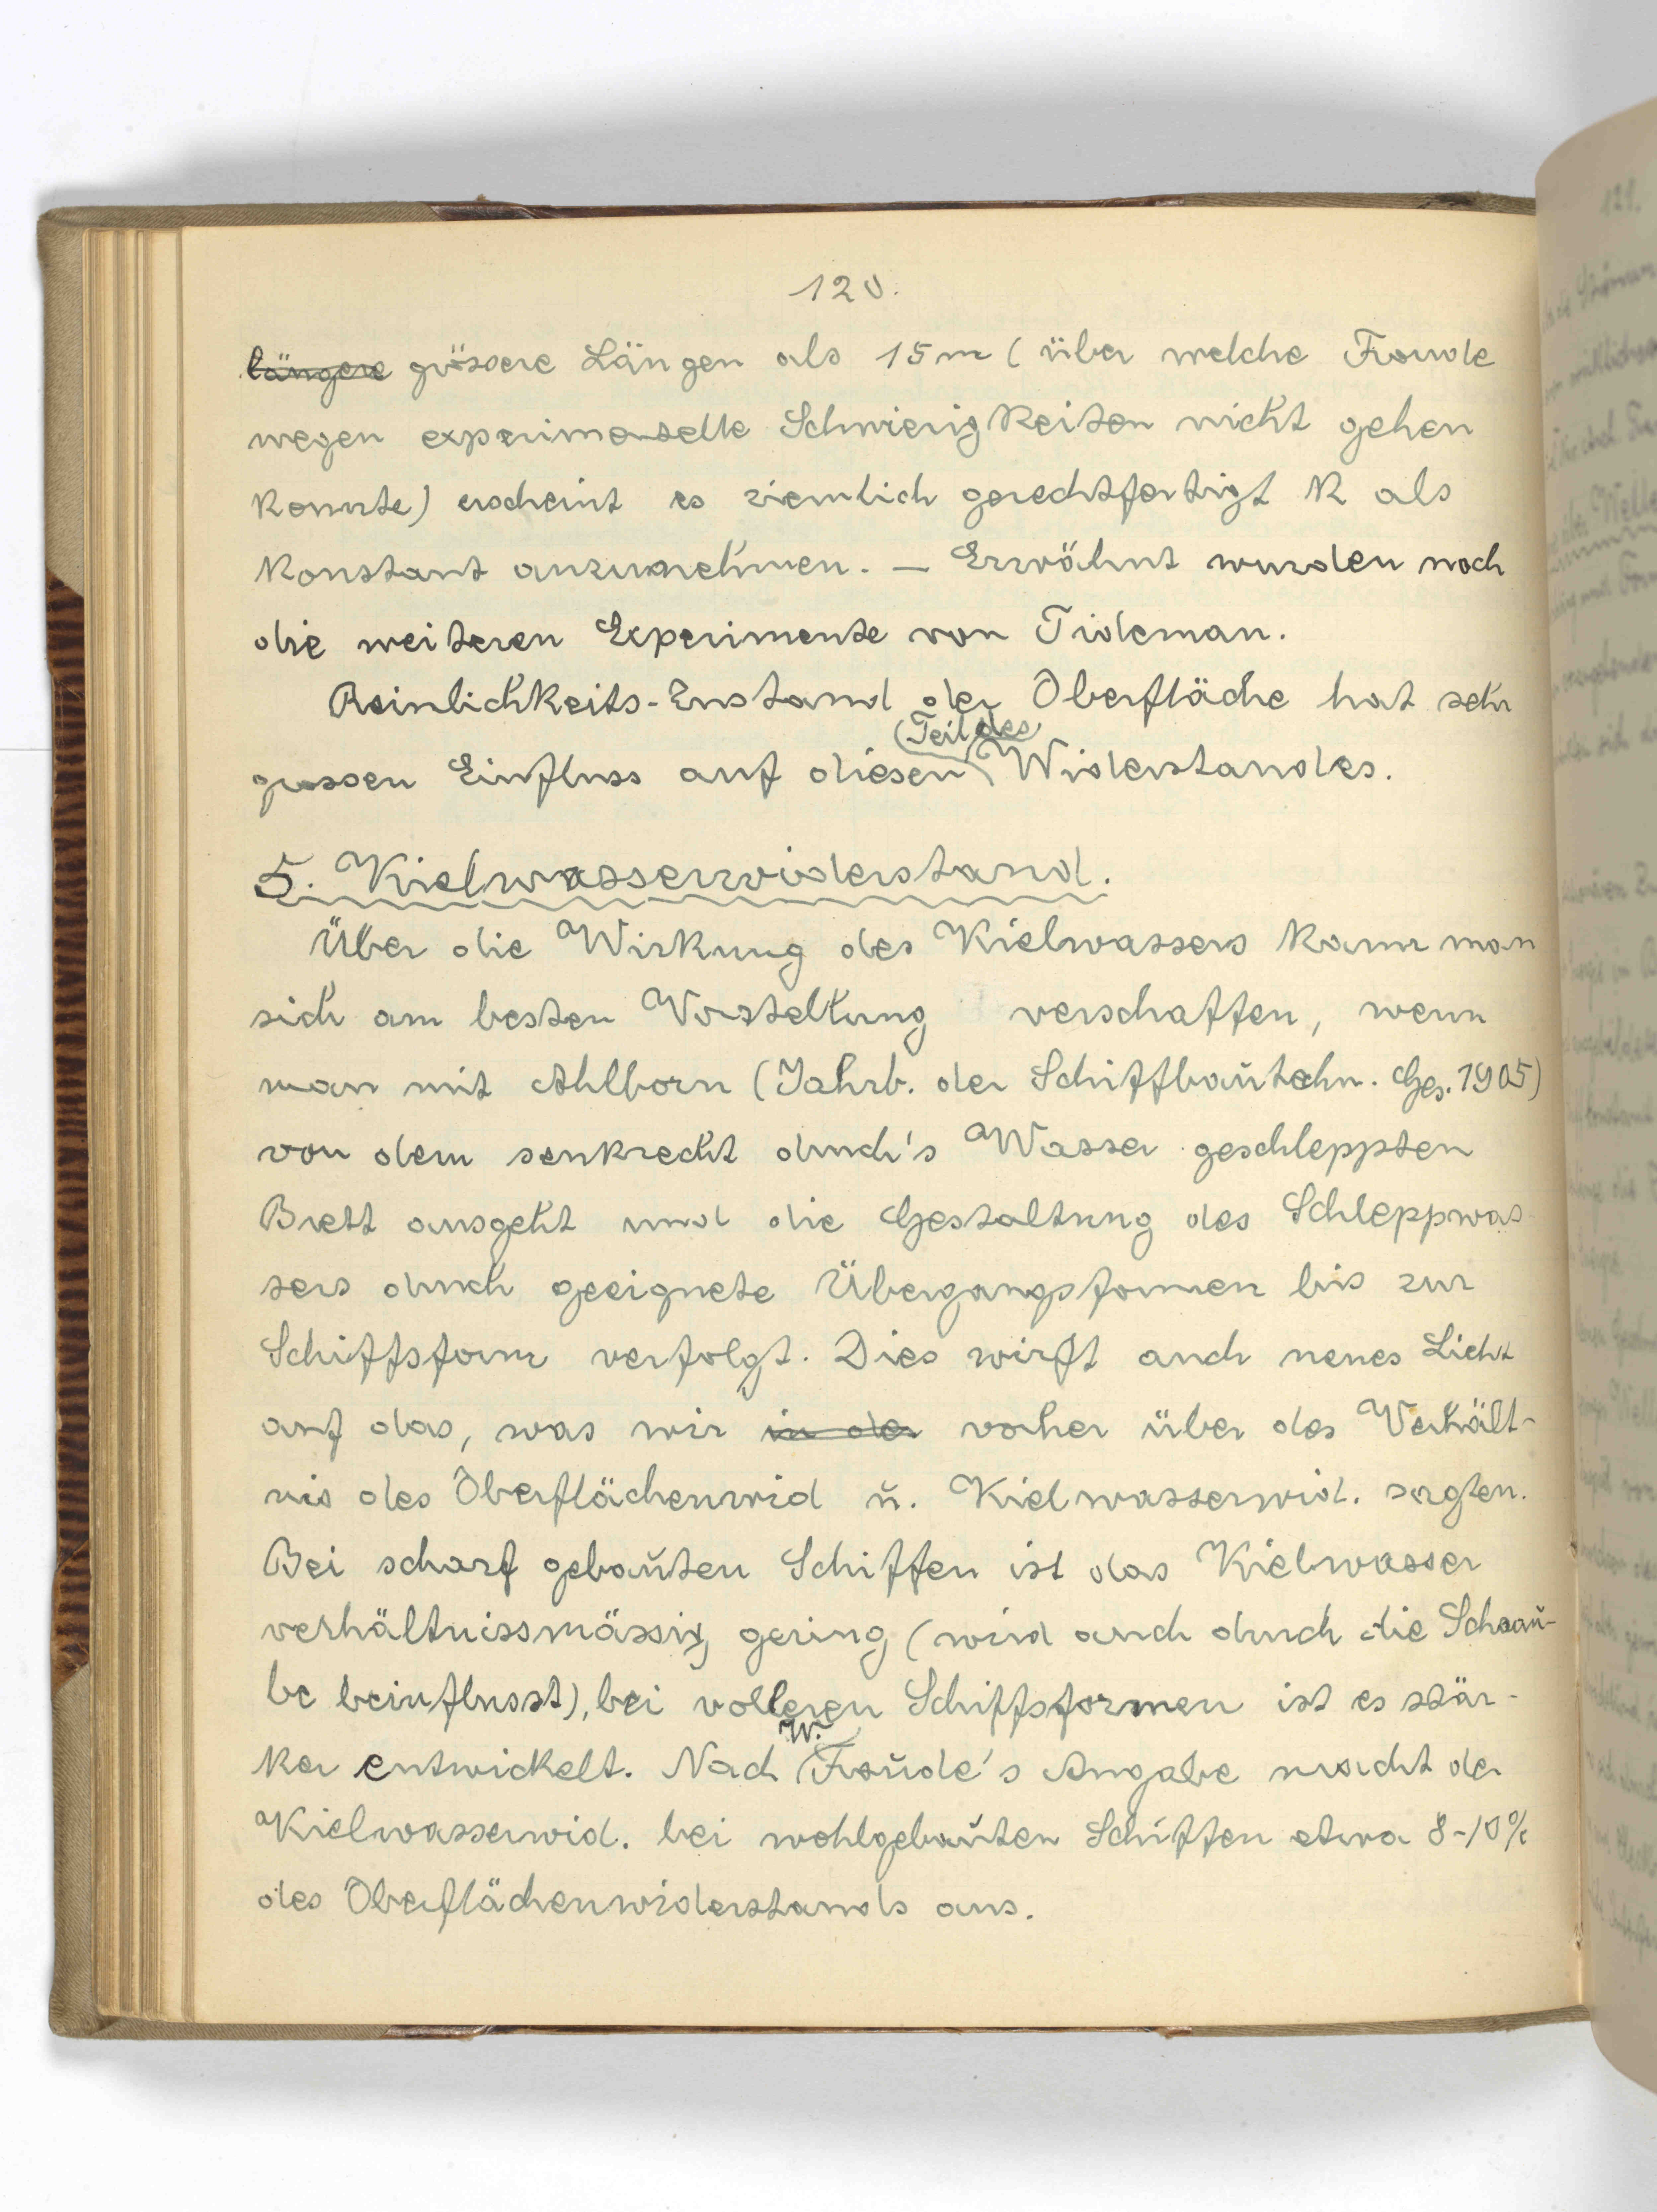 120.
längere grössere Längen als 15 m (über welche Froude
wegen experimentelle Schwierigkeiten nicht gehen
konnte) erscheint es ziemlich gerechtfertigt k als
konstant anzunehmen. — Erwähnt wurden noch
die weiteren Experimente von Tideman.
Reinlichkeits-Zustand der Oberfläche hat sehr
(Teil des)
grossen Einfluss auf diesen Widerstandes.
5. Kielwasserwiderstand.
Über die Wirkung des Kielwassers kann man
sich am besten Vorstellung verschaffen, wenn
man mit Ahlborn (Jahrb. der Schiffbautechn. Ges. 1905)
von dem senkrecht durch's Wasser geschleppten
Brett ausgeht und die Gestaltung des Schleppwas-
sers durch geeignete Übergangsformen bis zur
Schiffsform verfolgt. Dies wirft auch neues Licht
auf das, was wir in der vorher über das Verhält-
nis des Oberflächenwid u. Kielwasserwid. sagten.
Bei scharf gebauten Schiffen ist das Kielwasser
verhältnissmässig gering (wird auch durch die Schrau-
be beinflusst), bei volleren Schiffsformen ist es stär-
W.
ker entwickelt. Nach Froude's Angabe macht der
Kielwasserwid. bei wohlgebauten Schiffen etwa 8-10%
des Oberflächenwiderstands aus.